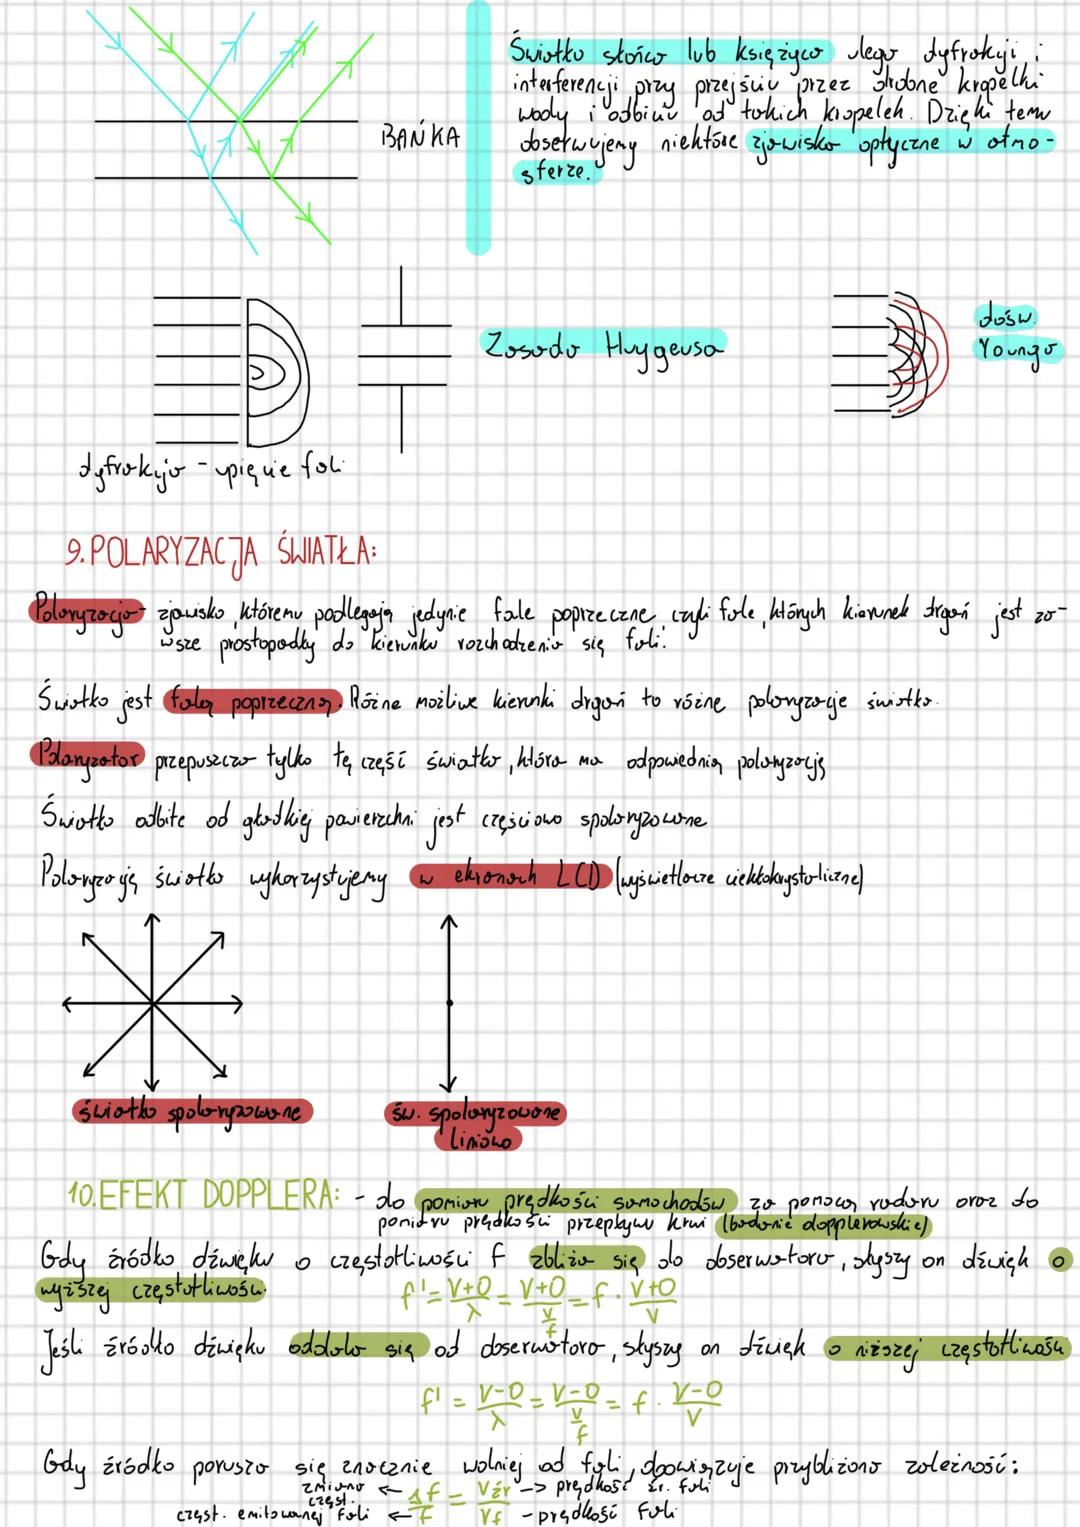 Światło słońca lub księżyca ulega dyfrakcji i
interferencji przy przejściu przez drobne kropelki
wody i odbiciu od takich kropelek. Dzięki temu
obserwujemy niektóre zjawiska optyczne w atmo-
sferze.
BAŃKA
Zasada Huygensa
dośw.
Younga
dyfrakcja - ugięcie fali
9. POLARYZACJA ŚWIATŁA:
Polaryzacja - zjawisko, któremu podlegają jedynie fale poprzeczne, czyli fale, których kierunek drgań jest za-
wsze prostopadły do kierunku rozchodzenia się fali.
Światło jest falą poprzeczną. Różne możliwe kierunki drgań to różne polaryzacje światła.
Polaryzator przepuszcza tylko tę część światła, która ma odpowiednią polaryzację
Światło odbite od gładkiej powierzchni jest częściowo spolaryzowane
Polaryzację światła wykorzystujemy w ekranach LCD (wyświetlacze ciekłokrystaliczne)
światło spolaryzowane
św. spolaryzowane
liniowo
10. EFEKT DOPPLERA: - do pomiaru prędkości samochodów za pomocą radaru oraz do
pomiaru prędkości przepływu krwi (badanie dopplerowskie)
Gdy źródło dźwięku o częstotliwości f zbliża się do obserwatora, słyszy on dźwięk o
wyższej częstotliwości.
f' = V+O/λ = V+O/(V/f) = f · V+O/V
Jeśli źródło dźwięku oddala się od obserwatora, słyszy on dźwięk o niższej częstotliwości
f' = V-O/λ = V-O/(V/f) = f · V-O/V
Gdy źródło porusza się znacznie wolniej od fali, obowiązuje przybliżona zależność:
zmiana częst. ← Δf/f = Vźr/Vf -> prędkość źr. fali
częst. emitowanej fali ← - prędkość fali